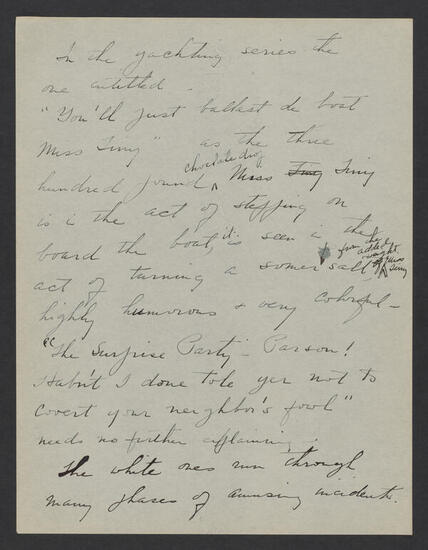 In the yachting series the
one entitled.
"You'll just ballast de boat
Miss Tiny" as the three
chocolate drop
hundred pound ^ Miss Tiny Tiny
is i the act of stepping on
board the boat it is seen i the
act of turning a somersault
from the
added
weight
of Miss
Tiny
highly humorous & very colorful –
"The Surprise Party – Parson!
Habn't I done tole yer not to
covert your neighbor's fowl"
needs no further explaining.
The white ones run through
many phases of amusing incidents.